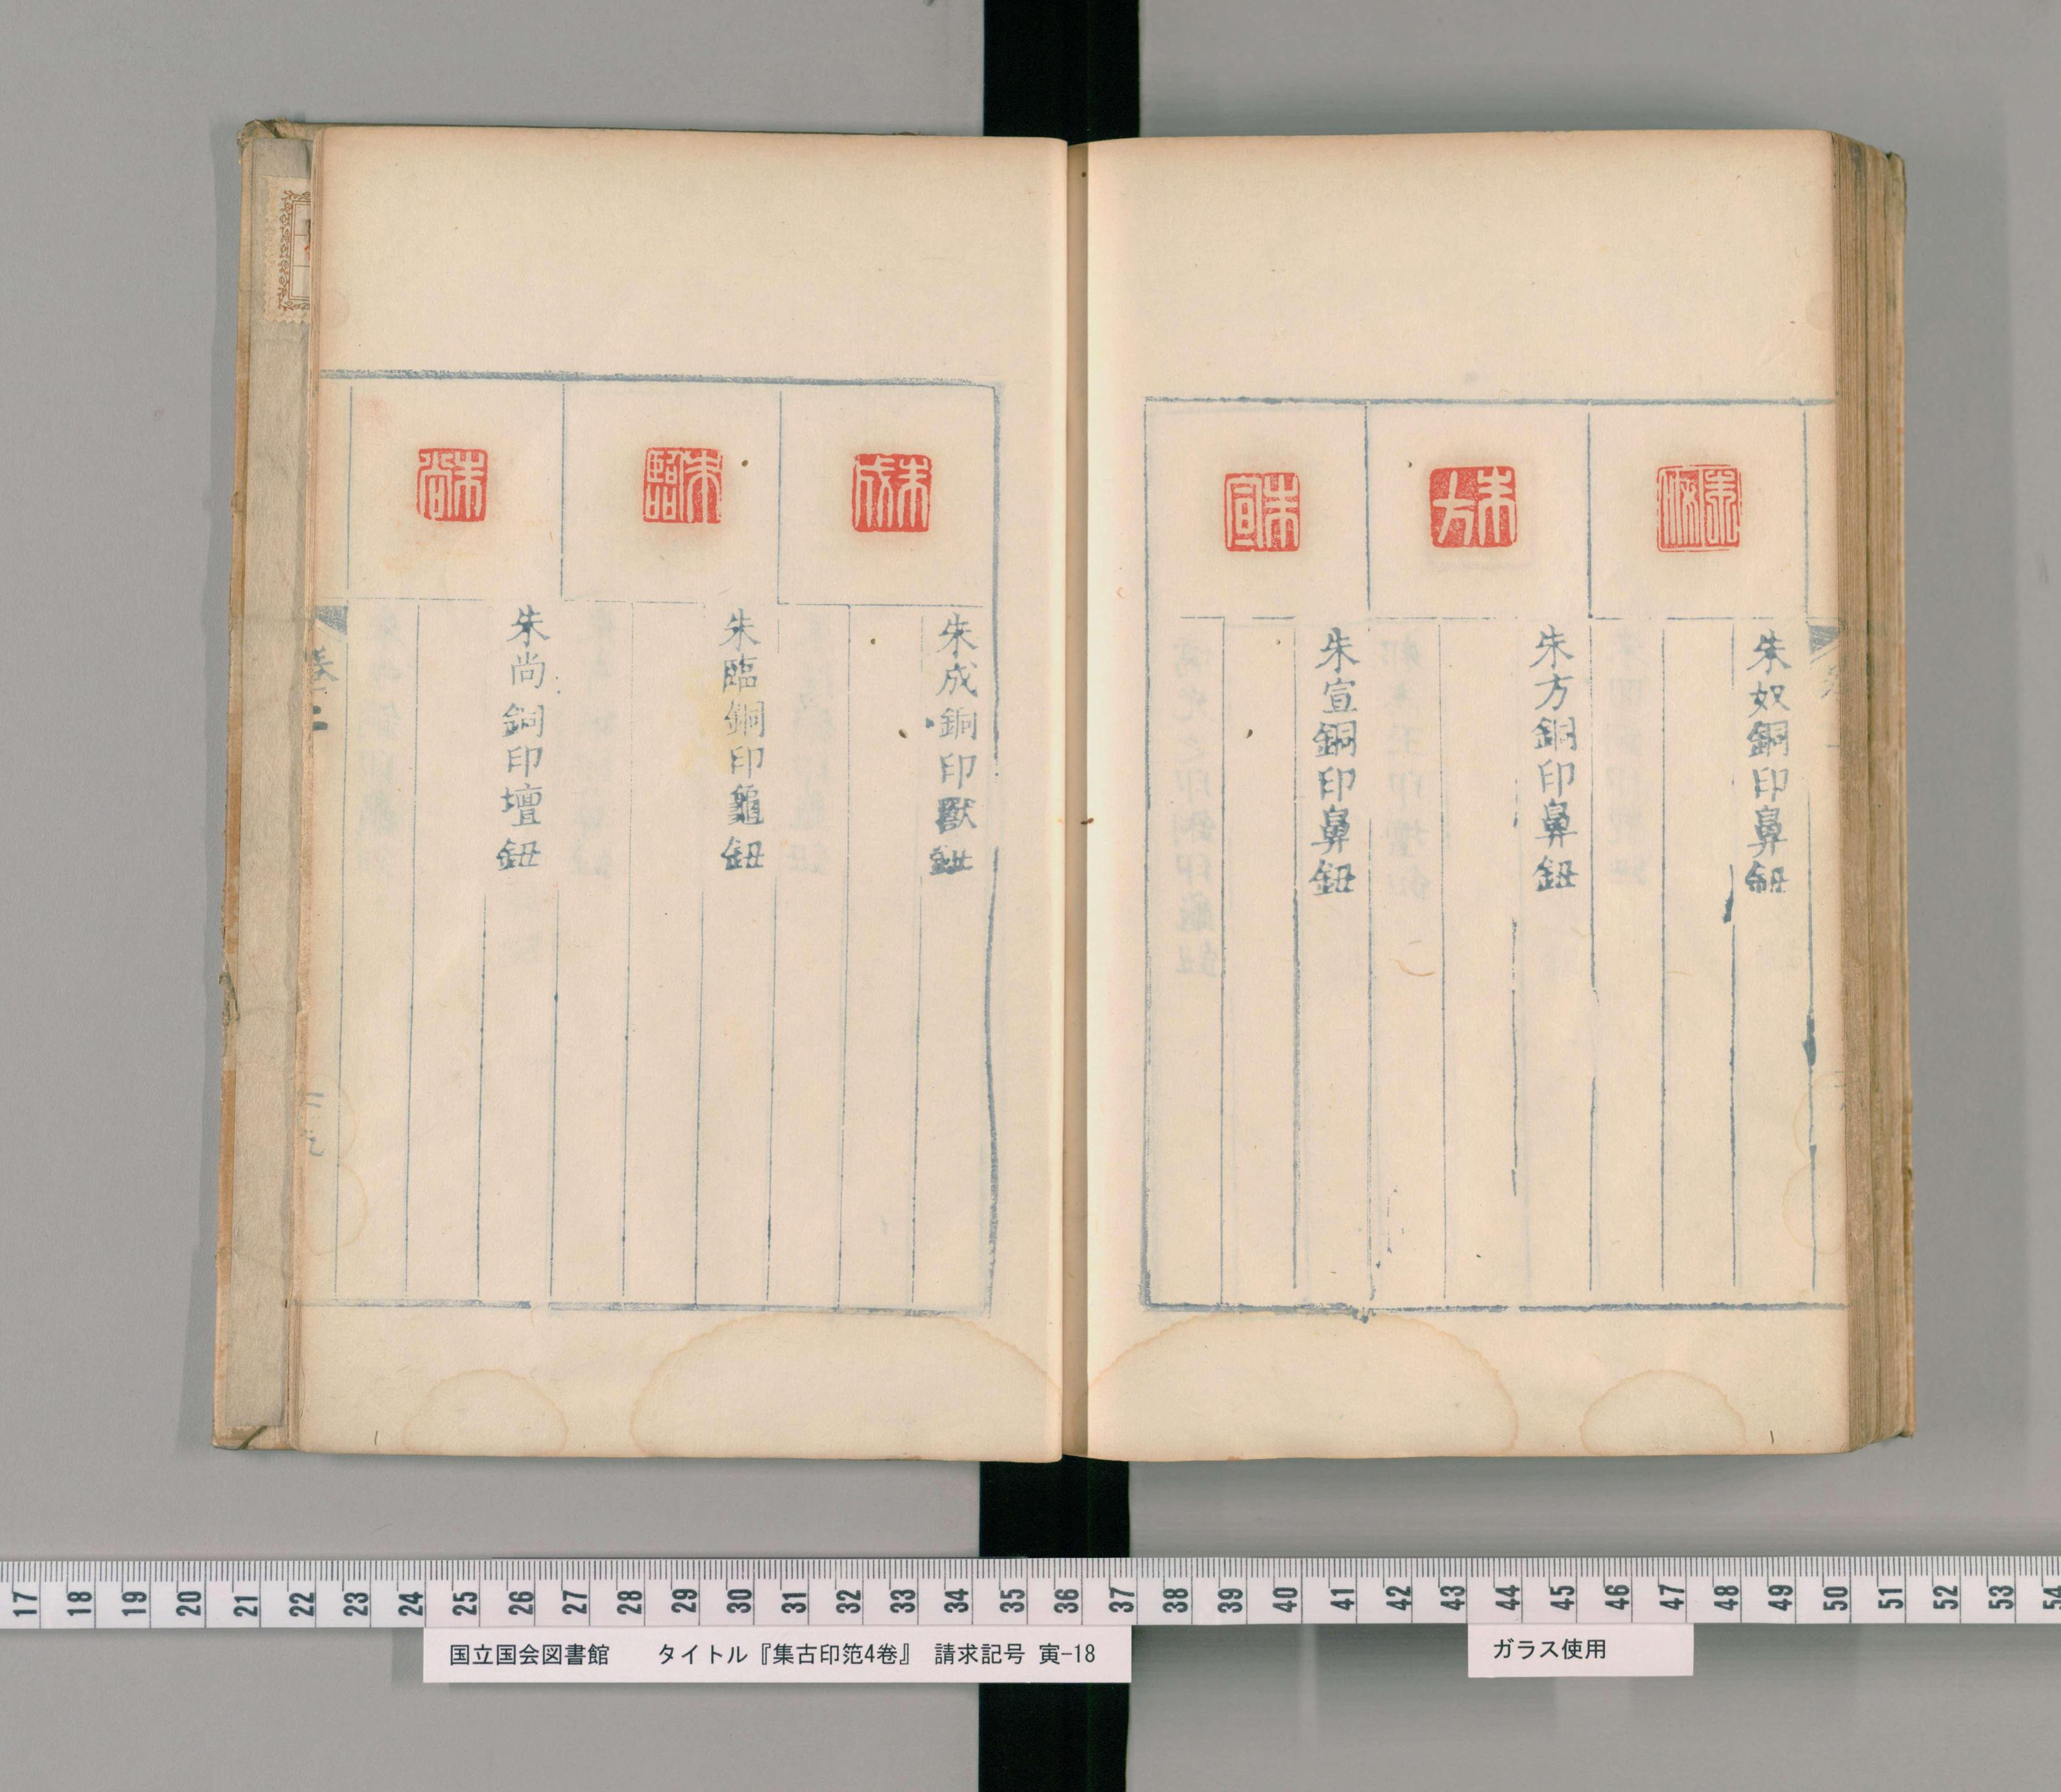 朱奴銅印鼻鈕
朱方銅印鼻鈕
朱宣銅印鼻鈕
朱成銅印獸鈕
朱臨銅印龜鈕
朱尚銅印壇鈕
卷二
朱方
朱宣
朱成
朱臨
朱尚
17 18 19 20 21 22 23 24 25 26 27 28 29 30 31 32 33 34 35 36 37 38 39 40 41 42 43 44 45 46 47 48 49 50 51 52 53 54
国立国会図書館 タイトル『集古印笵4巻』 請求記号 寅-18
ガラス使用